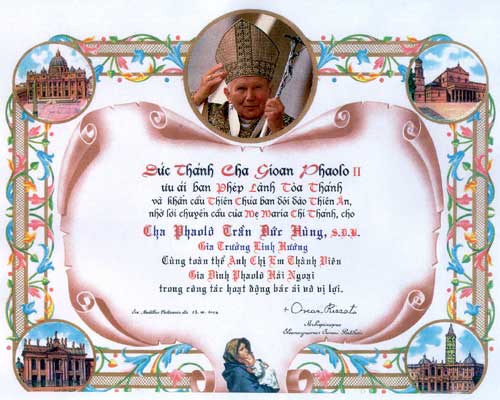 Đức Thánh Cha Gioan Phaolo II
ưu ái ban Phép Lành Tòa Thánh
và khẩn cầu Thiên Chúa ban dồi dào Thiên Ân,
nhờ lời chuyển cầu của Mẹ Maria Chí Thánh, cho
Cha Phaolô Trần Đức Hùng, S.D.B.
Gia Trưởng Linh Hướng
Cùng toàn thể Anh Chị Em Thành Viên
Gia Đình Phaolô Hải Ngoại
trong công tác hoạt động bác ái vô vị lợi.
Ex Aedibus Vaticanis die
+ Oscar Rizzato